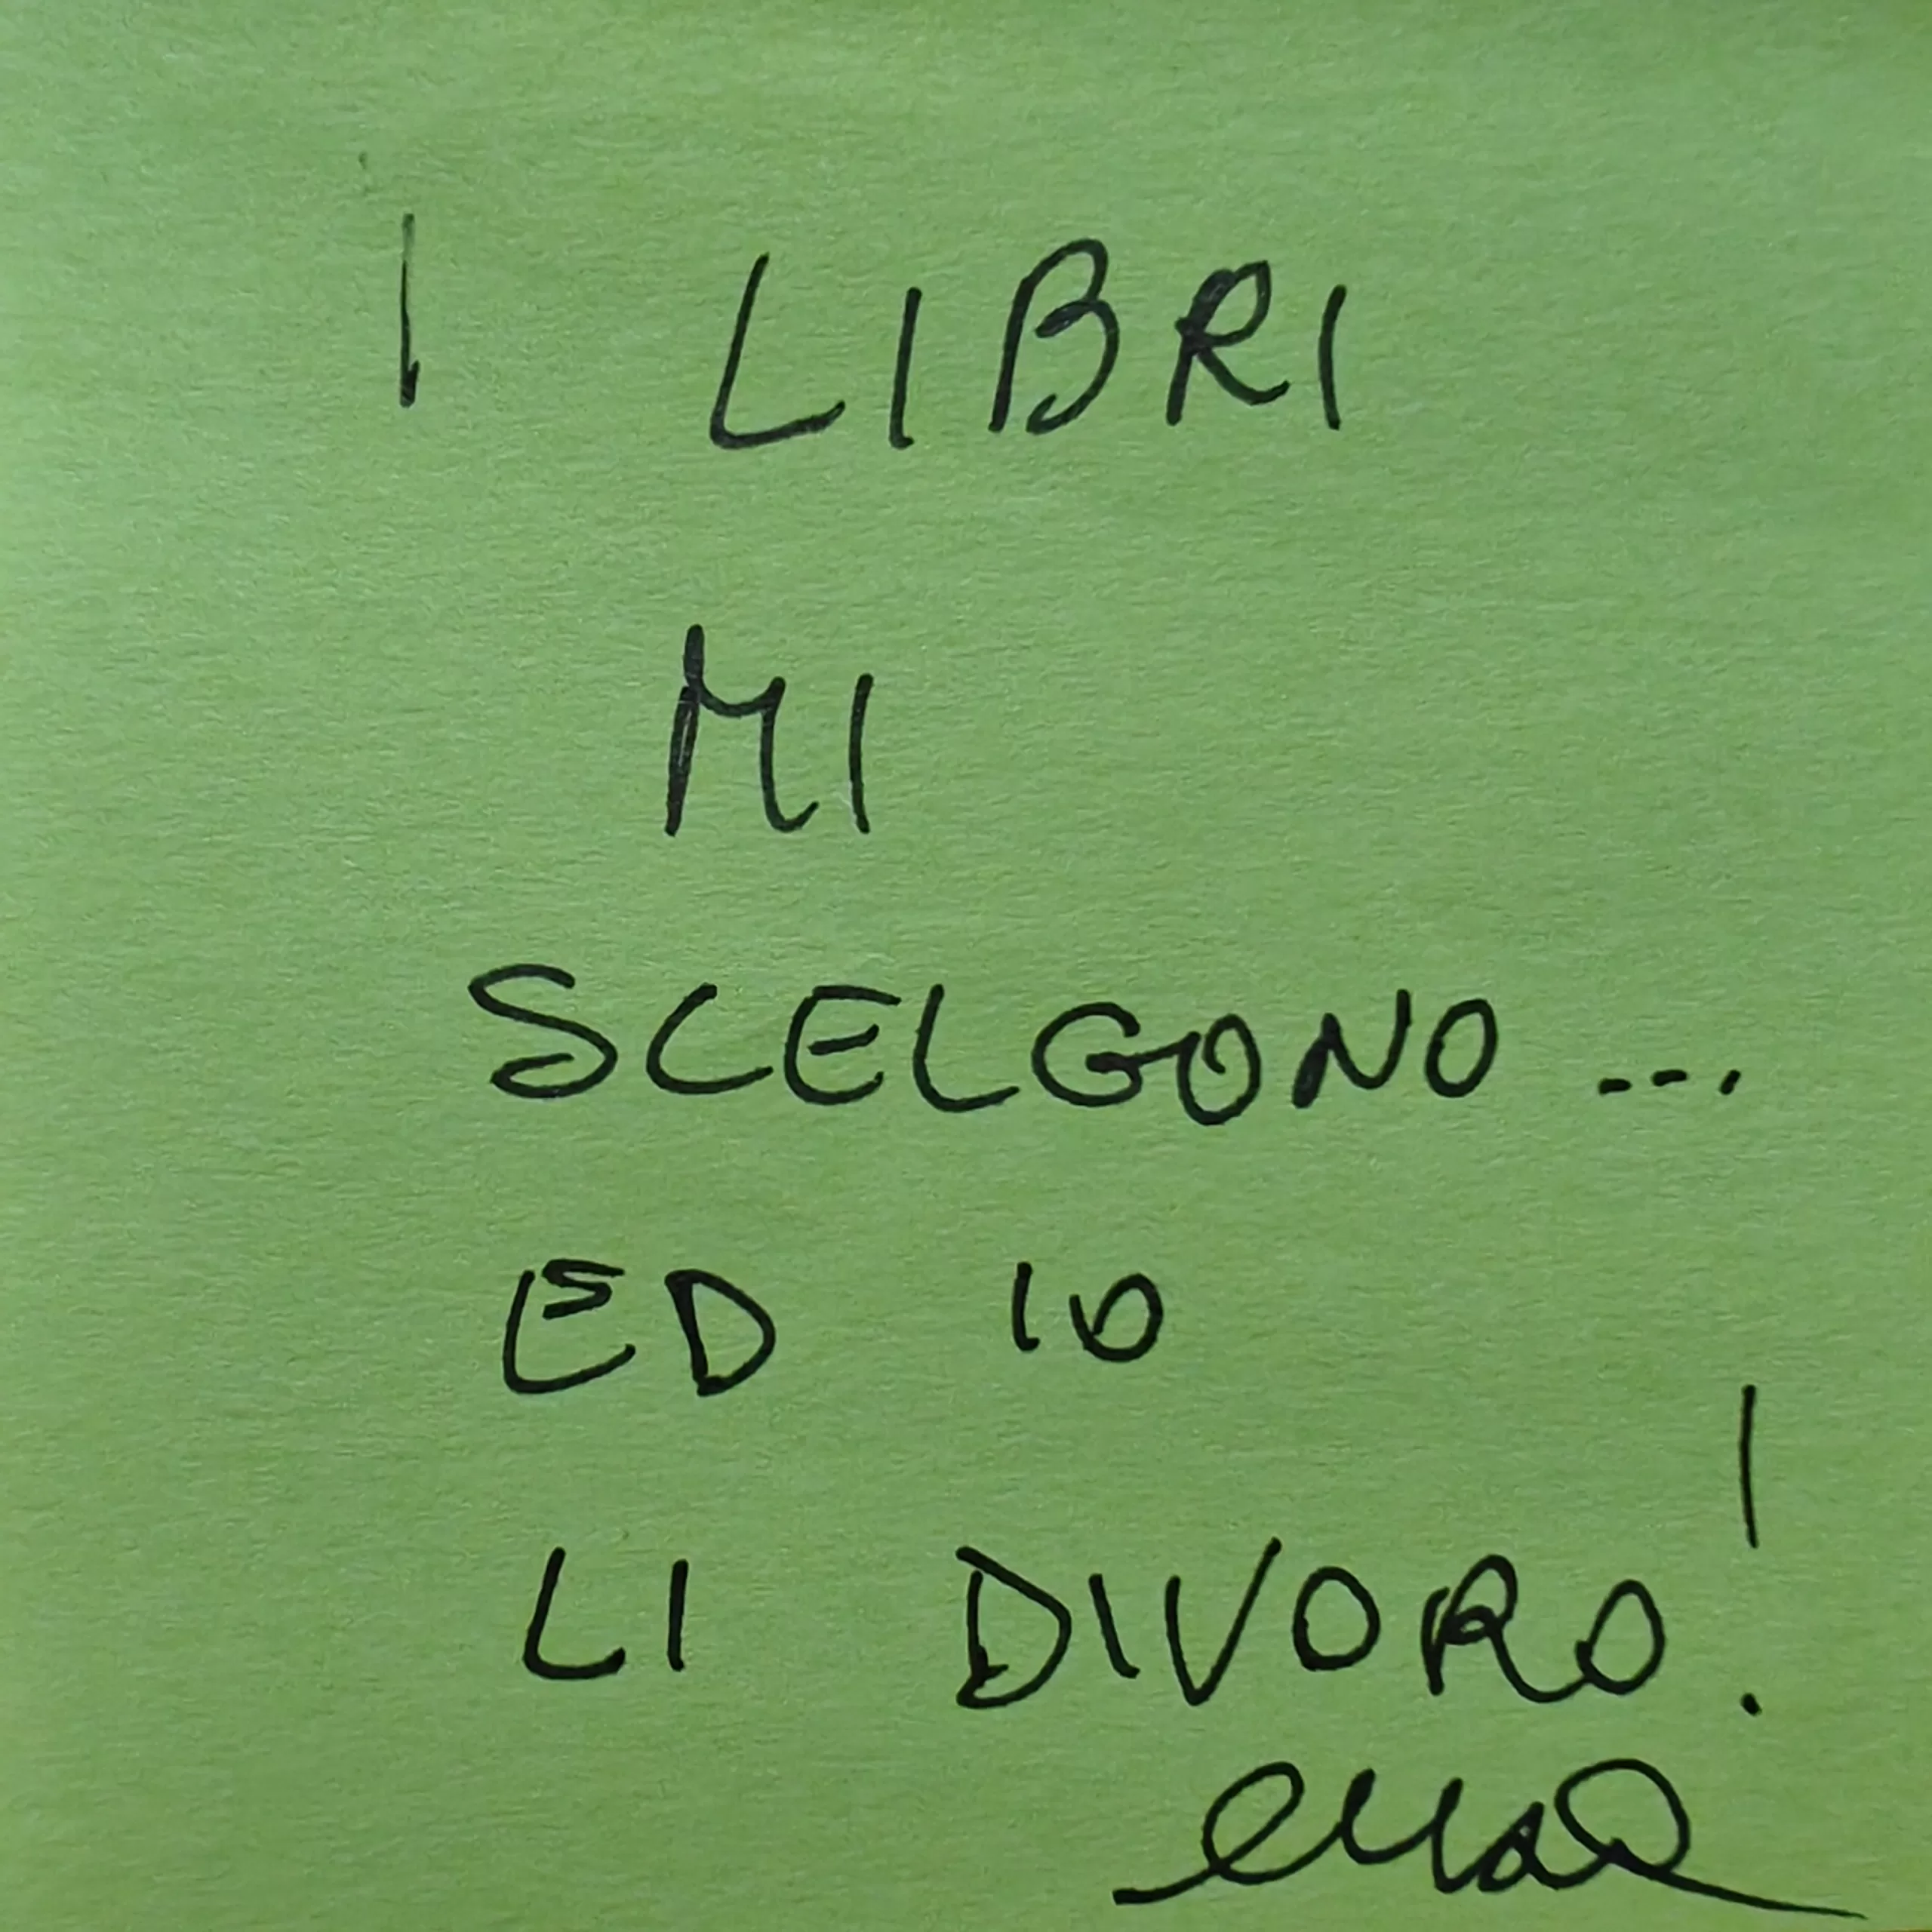 I LIBRI
MI
SCELGONO...
ED IO
LI DIVORO!